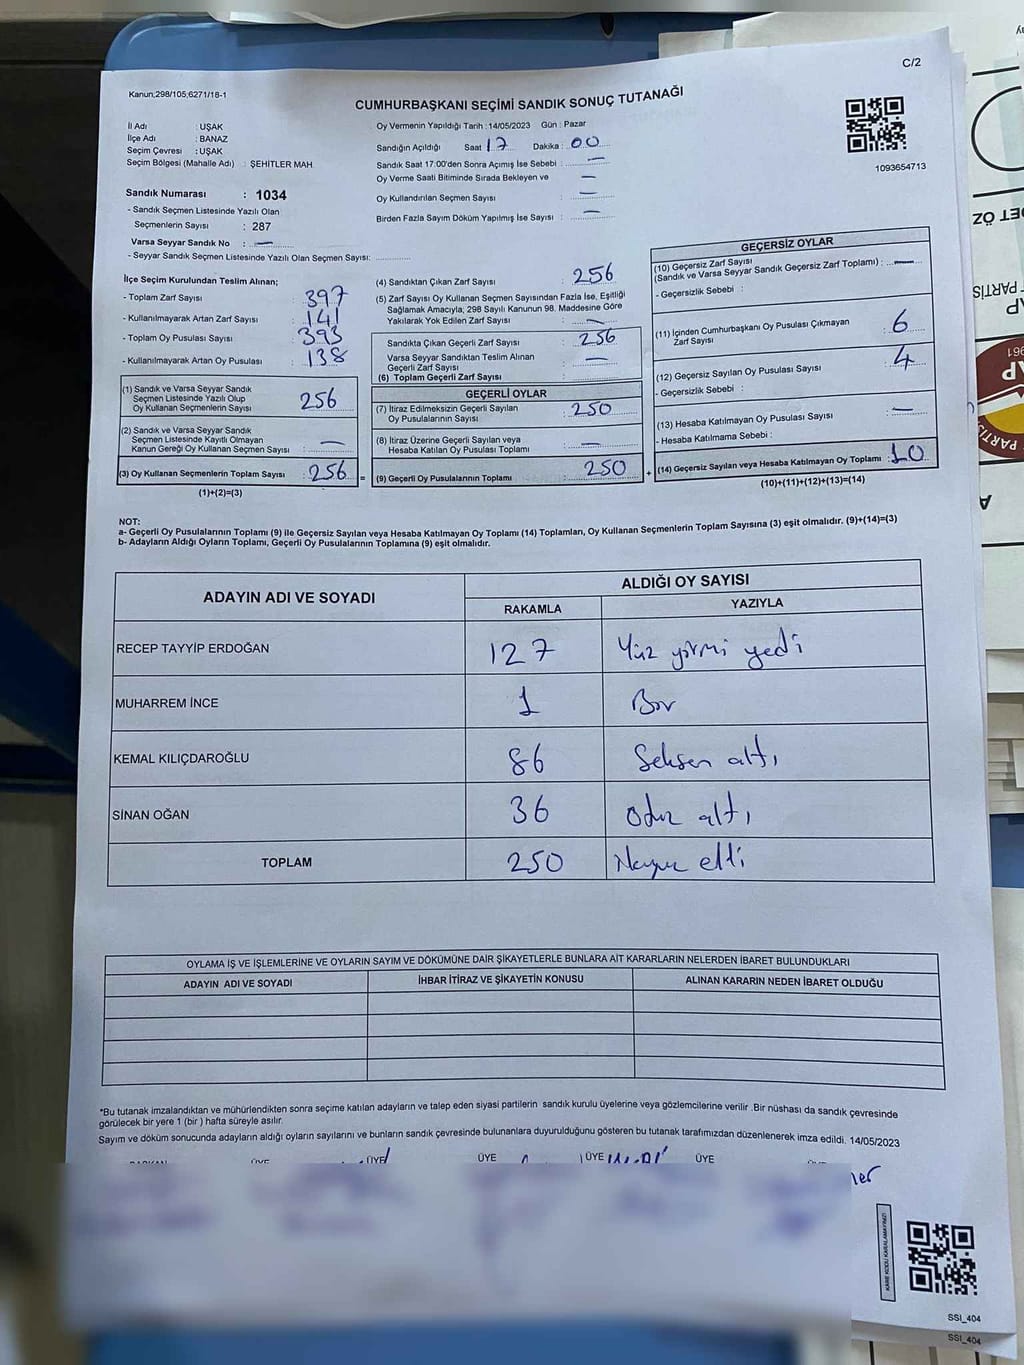 C/2
Kanun;298/105,6271/16-1
CUMHURBAŞKANI SEÇİMİ SANDIK SONUÇ TUTANAĞI
1093654713
İl Adı : UŞAK
İlçe Adı : BANAZ
Seçim Çevresi : UŞAK
Seçim Bölgesi (Mahalle Adı) : ŞEHİTLER MAH
Sandık Numarası : 1034
- Sandık Seçmen Listesinde Yazılı Olan
Seçmenlerin Sayısı : 287
Varsa Seyyar Sandık No : —
- Seyyar Sandık Seçmen Listesinde Yazılı Olan Seçmen Sayısı: ..............
Oy Vermenin Yapıldığı Tarih : 14/05/2023 Gün : Pazar
Sandığın Açıldığı Saat 17 Dakika : 00
Sandık Saat 17:00'den Sonra Açımış İse Sebebi : —
Oy Verme Saati Bitiminde Sırada Bekleyen ve —
Oy Kullandırılan Seçmen Sayısı : —
Birden Fazla Sayım Döküm Yapılmış İse Sayısı : —
İlçe Seçim Kurulundan Teslim Alınan;
- Toplam Zarf Sayısı : 397
- Kullanılmayarak Artan Zarf Sayısı : 141
- Toplam Oy Pusulası Sayısı : 393
- Kullanılmayarak Artan Oy Pusulası : 138
(1) Sandık ve Varsa Seyyar Sandık
Seçmen Listesinde Yazılı Olup
Oy Kullanan Seçmenlerin Sayısı : 256
(2) Sandık ve Varsa Seyyar Sandık
Seçmen Listesinde Kayıtlı Olmayan
Kanun Gereği Oy Kullanan Seçmen Sayısı : —
(3) Oy Kullanan Seçmenlerin Toplam Sayısı : 256 =
(1)+(2)=(3)
(4) Sandıktan Çıkan Zarf Sayısı : 256
(5) Zarf Sayısı Oy Kullanan Seçmen Sayısından Fazla İse, Eşitliği
Sağlamak Amacıyla; 298 Sayılı Kanunun 98. Maddesine Göre
Yakılarak Yok Edilen Zarf Sayısı : —
Sandıkta Çıkan Geçerli Zarf Sayısı : 256
Varsa Seyyar Sandıktan Teslim Alınan
Geçerli Zarf Sayısı : —
(6) Toplam Geçerli Zarf Sayısı :
GEÇERLİ OYLAR
(7) İtiraz Edilmeksizin Geçerli Sayılan
Oy Pusulalarının Sayısı : 250
(8) İtiraz Üzerine Geçerli Sayılan veya
Hesaba Katılan Oy Pusulası Toplamı : —
(9) Geçerli Oy Pusularının Toplamı : 250 +
GEÇERSİZ OYLAR
(10) Geçersiz Zarf Sayısı
(Sandık ve Varsa Seyyar Sandık Geçersiz Zarf Toplamı) : —
- Geçersizlik Sebebi :
(11) İçinden Cumhurbaşkanı Oy Pusulası Çıkmayan
Zarf Sayısı : 6
(12) Geçersiz Sayılan Oy Pusulası Sayısı : 4
- Geçersizlik Sebebi :
(13) Hesaba Katılmayan Oy Pusulası Sayısı : —
- Hesaba Katılmama Sebebi :
(14) Geçersiz Sayılan veya Hesaba Katılmayan Oy Toplamı : 10
(10)+(11)+(12)+(13)=(14)
NOT:
a- Geçerli Oy Pusulalarının Toplamı (9) ile Geçersiz Sayılan veya Hesaba Katılmayan Oy Toplamı (14) Toplamları, Oy Kullanan Seçmenlerin Toplam Sayısına (3) eşit olmalıdır. (9)+(14)=(3)
b- Adayların Aldığı Oyların Toplamı, Geçerli Oy Pusulalarının Toplamına (9) eşit olmalıdır.
ADAYIN ADI VE SOYADI
ALDIĞI OY SAYISI
RAKAMLA YAZIYLA
RECEP TAYYİP ERDOĞAN 127 Yüz yirmi yedi
MUHARREM İNCE 1 Bir
KEMAL KILIÇDAROĞLU 86 Seksen altı
SİNAN OĞAN 36 Otuz altı
TOPLAM 250 elli
OYLAMA İŞ VE İŞLEMLERİNE VE OYLARIN SAYIM VE DÖKÜMÜNE DAİR ŞİKAYETLERLE BUNLARA AİT KARARLARIN NELERDEN İBARET BULUNDUKLARI
ADAYIN ADI VE SOYADI İHBAR İTİRAZ VE ŞİKAYETİN KONUSU ALINAN KARARIN NEDEN İBARET OLDUĞU
*Bu tutanak imzalandıktan ve mühürlendikten sonra seçime katılan adayların ve talep eden siyasi partilerin sandık kurulu üyelerine veya gözlemcilerine verilir .Bir nüshası da sandık çevresinde
görülecek bir yere 1 (bir ) hafta süreyle asılır.
Sayım ve döküm sonucunda adayların aldığı oyların sayılarını ve bunların sandık çevresinde bulunanlara duyurulduğunu gösteren bu tutanak tarafımızdan düzenlenerek imza edildi. 14/05/2023
ÜYE ÜYE ÜYE ÜYE ÜYE
KARE KODU KARALAMAYINIZ!
SSİ_404
SSİ_404